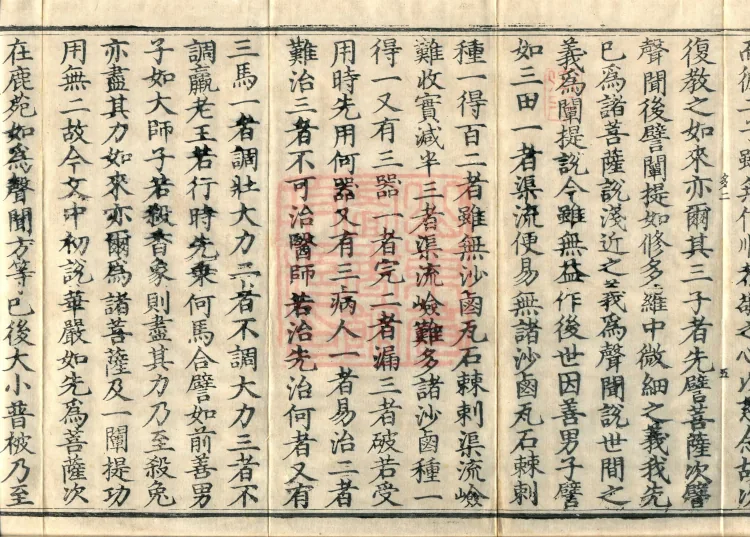 復教之如來亦爾其三子者先譬菩薩次譬
聲聞後譬闡提如修多羅中微細之義我先
已為諸菩薩說淺近之義為聲聞說世間之
義為闡提說今雖無益作後世因善男子譬
如三田一者渠流便易無諸沙鹵瓦石棘刺
種一得百二者雖無沙鹵瓦石棘刺渠流嶮
難收實減半三者渠流嶮難多諸沙鹵種一
得一又有三器一者完二者漏三者破若受
用時先用何器又有三病人一者易治二者
難治三者不可治醫師若治先治何者又有
三馬一者調壯大力二者不調大力三者不
調羸老王若行時先乘何馬合譬如前善男
子如大師子若殺香象則盡其力乃至殺兔
亦盡其力如來亦爾為諸菩薩及一闡提功
用無二故今文中初說華嚴如先為菩薩次
在鹿苑如為聲聞方等已後大小普被乃至